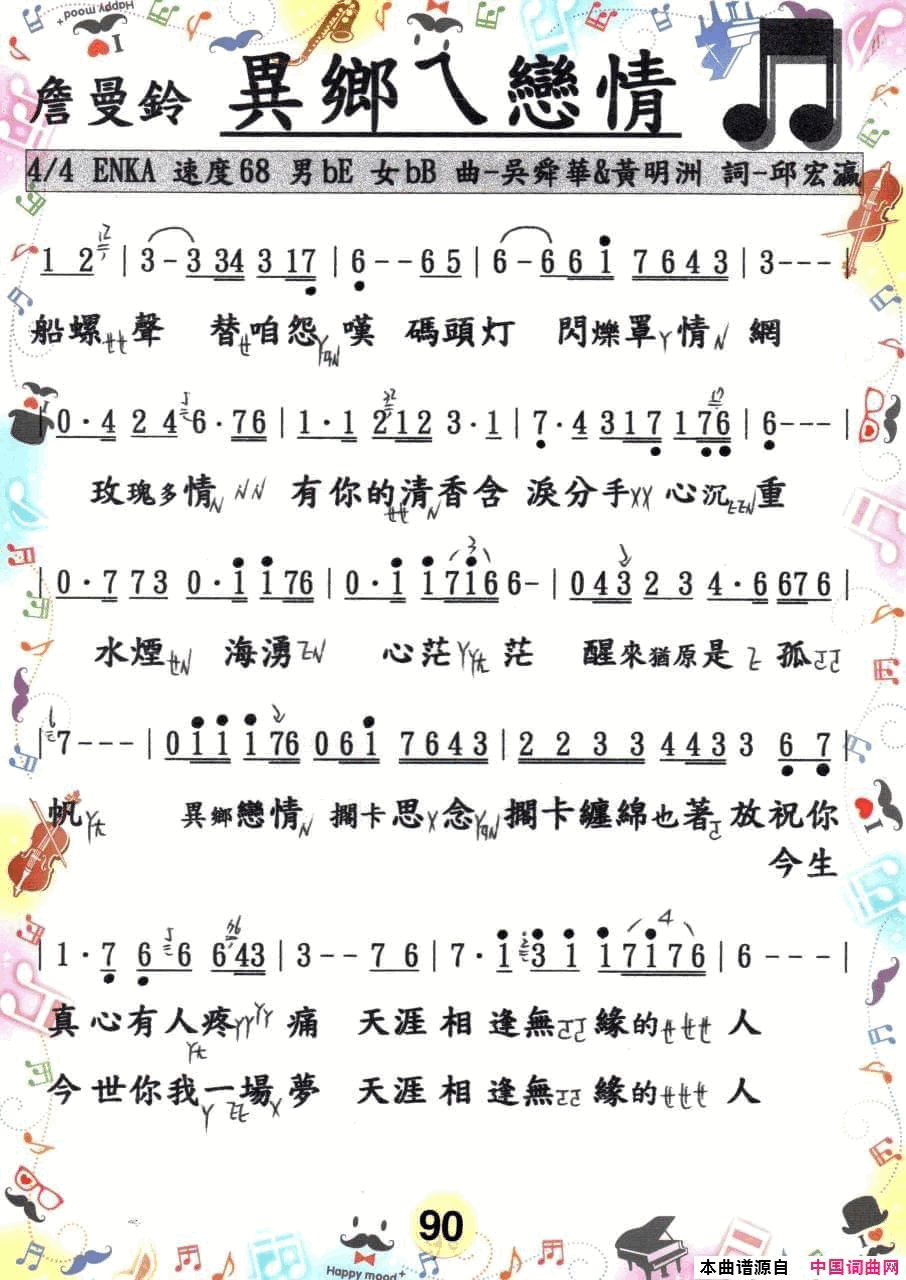 Happy mood +
I
詹曼鈴 異鄉ㄟ戀情
4/4 ENKA 速度68 男bE 女bB 曲-吳舜華&黃明洲 詞-邱宏瀛
1 2 | 3 - 3 34 3 17 | 6 - - 65 | 6 - 6 6 1 7643 | 3 - - - |
船螺聲 替咱怨嘆 碼頭灯 閃爍罩情網
| 0 · 4 2 4 6 · 76 | 1 · 1 212 3 · 1 | 7 · 4 317 176 | 6 - - - |
玫瑰多情 有你的清香含 淚分手 心沉重
| 0 · 7 73 0 · 1 176 | 0 · 1 1716 6 - | 043 23 4 · 6 676 |
水煙 海湧 心茫茫 醒來猶原是孤
| 7 - - - | 0111 76 061 7643 | 2 2 3 3 443 3 6 7 |
帆 異鄉戀情 擱卡思念 擱卡纏綿也著放祝你
今生
| 1 · 7 6 6 6 43 | 3 - - 7 6 | 7 · 1 3 1 1 7176 | 6 - - - |
真心有人疼痛 天涯相逢無緣的人
今世你我一場夢 天涯相逢無緣的人
90
Happy mood +
I
本曲谱源自 中国词曲网